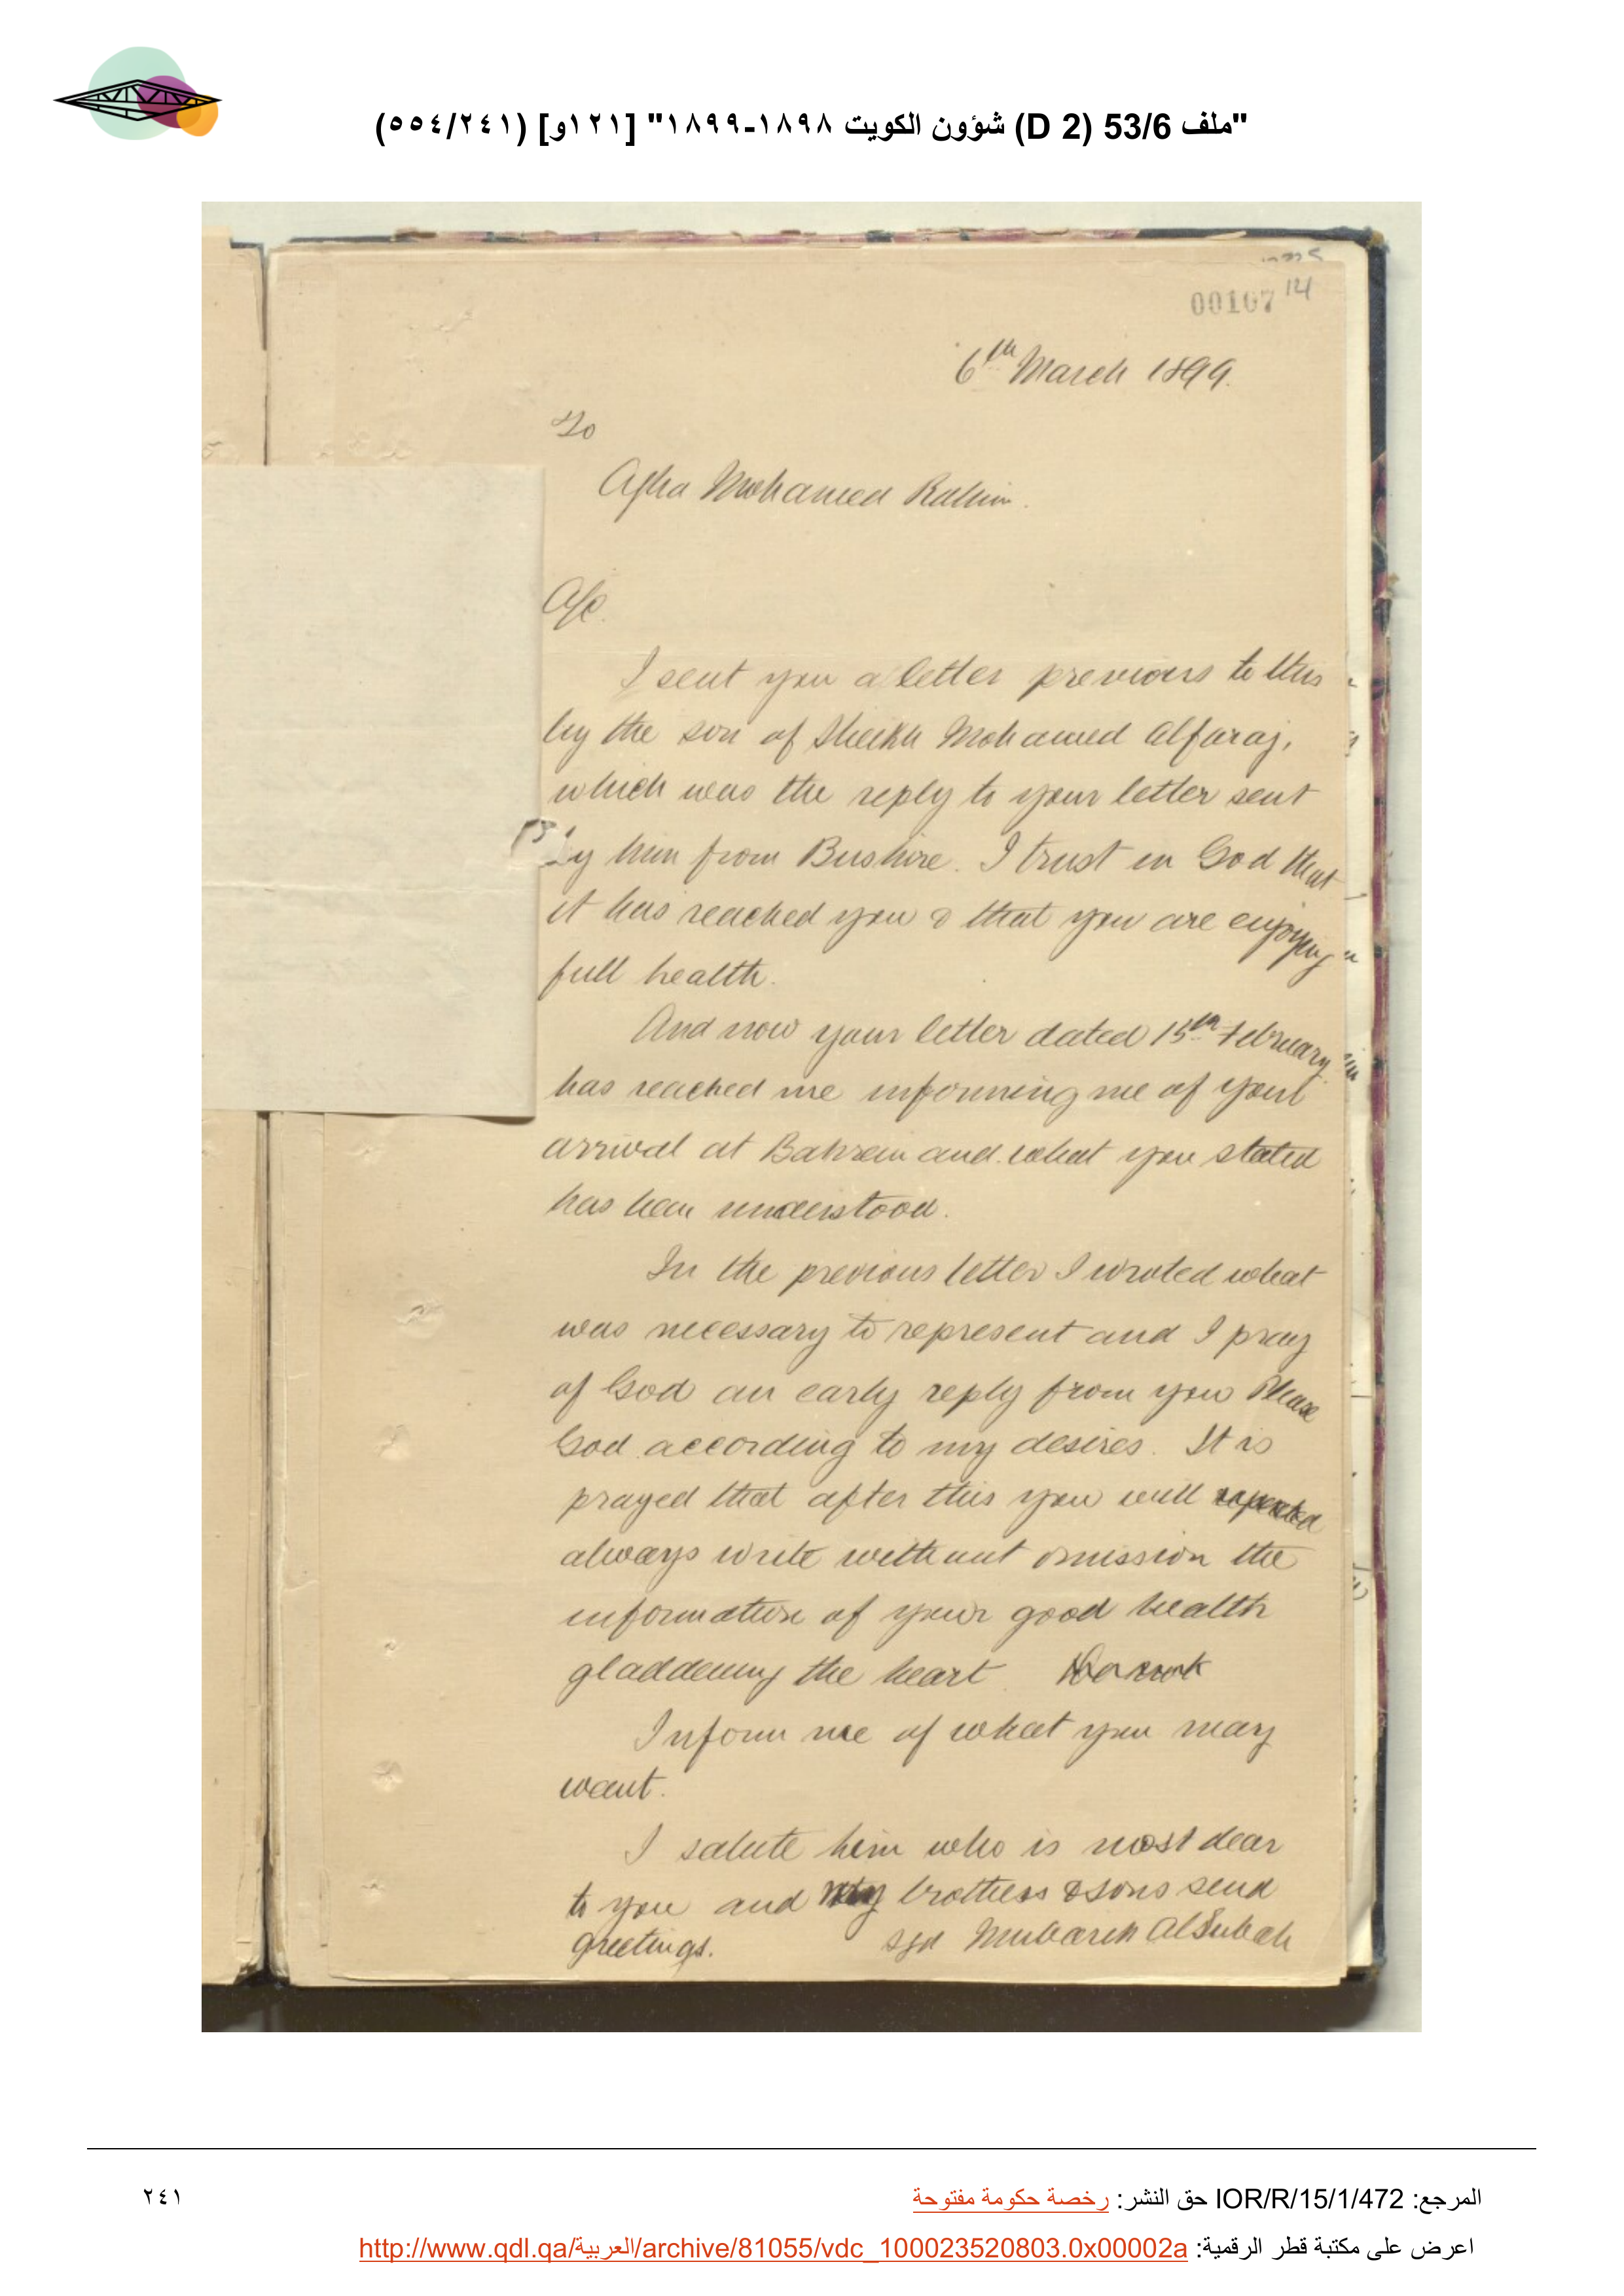 "ملف 53/6 (D 2) شؤون الكويت ١٨٩٨-١٨٩٩" [١٢١و] (٥٥٤/٢٤١)
00107
6th March 1899.
To
Agha Mohamed Rahim.
A/c.
I sent you a letter previous to this
by the son of Sheikh Mohamed Alfaraj,
which was the reply to your letter sent
by him from Bushire. I trust in God that
it has reached you & that you are enjoying
full health.
And now your letter dated 15th February
has reached me informing me of your
arrival at Bahrein and what you stated
has been understood.
In the previous letter I wroted what
was necessary to represent and I pray
of God an early reply from you Please
God according to my desires. It is
prayed that after this you will
always write without omission the
information of your good health
gladdening the heart.
Inform me of what you may
want.
I salute him who is most dear
to you and my brothers & sons send
greetings.
sgd Mubarek AlSubah
المرجع: IOR/R/15/1/472 حق النشر: رخصة حكومة مفتوحة
٢٤١
اعرض على مكتبة قطر الرقمية: http://www.qdl.qa/العربية/archive/81055/vdc_100023520803.0x00002a